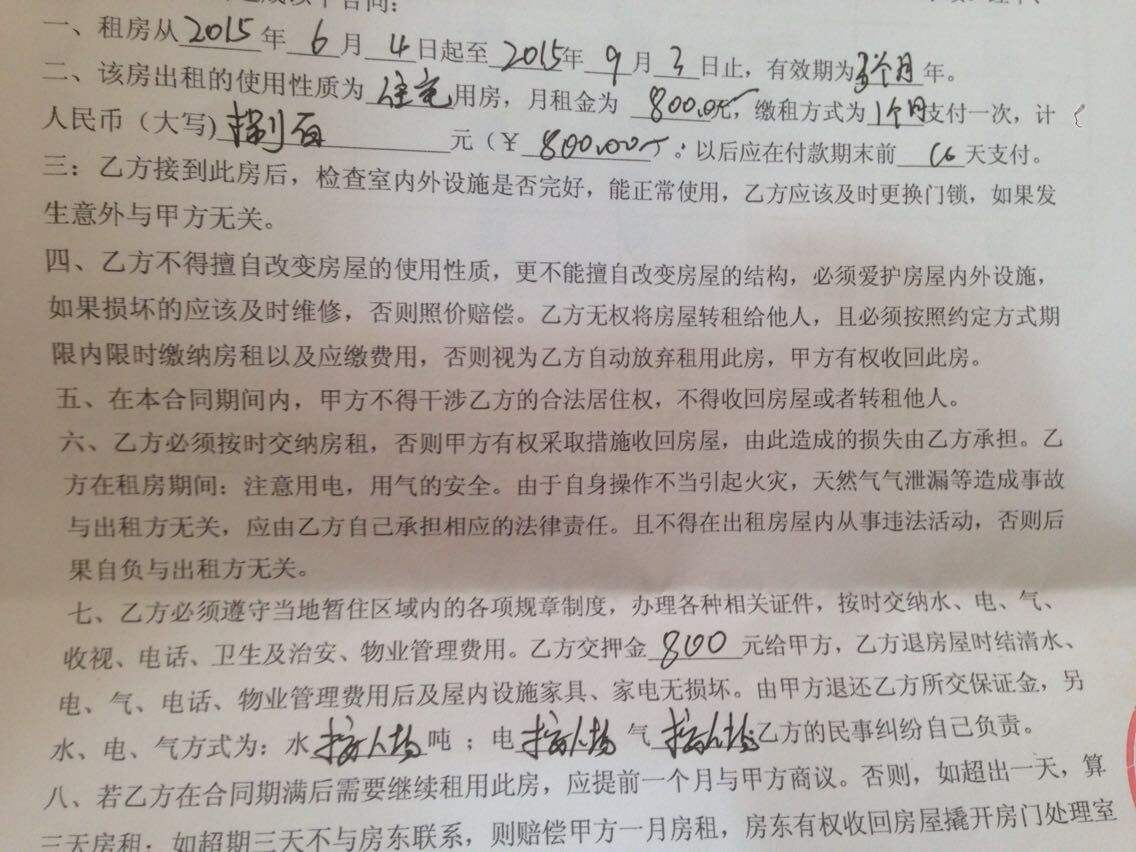 下合同：
一、租房从2015年6月4日起至2015年9月3日止，有效期为3个月年。
二、该房出租的使用性质为住宅用房，月租金为800.00元，缴租方式为1个月支付一次，计
人民币（大写）捌百元（￥800.00。以后应在付款期末前天支付。
三：乙方接到此房后，检查室内外设施是否完好，能正常使用，乙方应该及时更换门锁，如果发
生意外与甲方无关。
四、乙方不得擅自改变房屋的使用性质，更不能擅自改变房屋的结构，必须爱护房屋内外设施，
如果损坏的应该及时维修，否则照价赔偿。乙方无权将房屋转租给他人，且必须按照约定方式期
限内限时缴纳房租以及应缴费用，否则视为乙方自动放弃租用此房，甲方有权收回此房。
五、在本合同期间内，甲方不得干涉乙方的合法居住权，不得收回房屋或者转租他人。
六、乙方必须按时交纳房租，否则甲方有权采取措施收回房屋，由此造成的损失由乙方承担。乙
方在租房期间：注意用电，用气的安全。由于自身操作不当引起火灾，天然气气泄漏等造成事故
与出租方无关，应由乙方自己承担相应的法律责任。且不得在出租房屋内从事违法活动，否则后
果自负与出租方无关。
七、乙方必须遵守当地暂住区域内的各项规章制度，办理各种相关证件，按时交纳水、电、气、
收视、电话、卫生及治安、物业管理费用。乙方交押金800元给甲方，乙方退房屋时结清水、
电、气、电话、物业管理费用后及屋内设施家具、家电无损坏。由甲方退还乙方所交保证金，另
水、电、气方式为：水按人均吨；电按人均气按人均乙方的民事纠纷自己负责。
八、若乙方在合同期满后需要继续租用此房，应提前一个月与甲方商议。否则，如超出一天，算
三天房租；如超期三天不与房东联系，则赔偿甲方一月房租，房东有权收回房屋撬开房门处理室